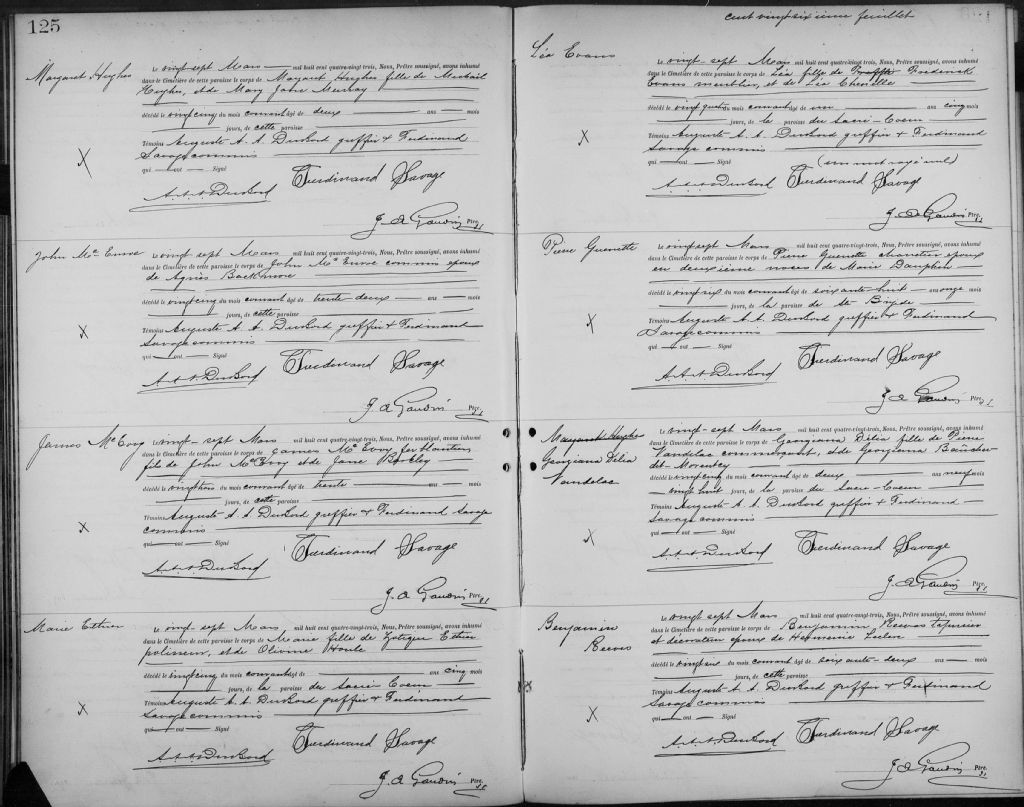 125
Margaret Hughes
Le vingt-sept Mars mil huit cent quatre-vingt-trois, Nous, Prêtre soussigné, avons inhumé
dans le Cimetière de cette paroisse le corps de Margaret Hughes fille de Michael
Hughes, et de Mary Jane Murray
décédé le vingt cinq du mois courant âgé de deux ans mois
jours, de cette paroisse
Témoins Auguste A. A. DuBord greffier & Ferdinand
Savage commis
qui ont Signé
A. A. A. DuBord Ferdinand Savage
J. A. Gaudin Ptre.
John Mc
Le vingt-sept Mars mil huit cent quatre-vingt-trois, Nous, Prêtre soussigné, avons inhumé
dans le Cimetière de cette paroisse le corps de John Mc commis époux
de Agnès
décédé le vingt cinq du mois courant âgé de trente-deux ans mois
jours, de cette paroisse
Témoins Auguste A. A. DuBord greffier & Ferdinand
Savage commis
qui ont Signé
A. A. A. DuBord Ferdinand Savage
J. A. Gaudin Ptre.
James McEvoy
Le vingt-sept Mars mil huit cent quatre-vingt-trois, Nous, Prêtre soussigné, avons inhumé
dans le Cimetière de cette paroisse le corps de James McEvoy ferblantier
fils de John McEvoy et de Jane
décédé le vingt trois du mois courant âgé de trente ans mois
jours, de cette paroisse
Témoins Auguste A. A. DuBord greffier & Ferdinand Savage
commis
qui ont Signé
A. A. A. DuBord Ferdinand Savage
J. A. Gaudin Ptre.
Marie Ethier
Le vingt-sept Mars mil huit cent quatre-vingt-trois, Nous, Prêtre soussigné, avons inhumé
dans le Cimetière de cette paroisse le corps de Marie fille de Zotique Ethier
polisseur, et de Olivine Houle
décédé le vingt cinq du mois courant âgé de ans cinq mois
jours, de la paroisse du Sacré-Coeur
Témoins Auguste A. A. DuBord greffier & Ferdinand
Savage commis
qui ont Signé
A. A. A. DuBord Ferdinand Savage
J. A. Gaudin Ptre.
cent vingt sixième feuillet
Léa Evans
Le vingt-sept Mars mil huit cent quatre-vingt-trois, Nous, Prêtre soussigné, avons inhumé
dans le Cimetière de cette paroisse le corps de Léa fille de Frederick
Evans meublier, et de Léa
décédé le vingt quatre du mois courant âgé de un ans cinq mois
jours, de la paroisse du Sacré-Coeur
Témoins Auguste A. A. DuBord greffier & Ferdinand
Savage commis
qui ont Signé (un mot rayé nul)
A. A. A. DuBord Ferdinand Savage
J. A. Gaudin Ptre.
Pierre Guenette
Le vingt-sept Mars mil huit cent quatre-vingt-trois, Nous, Prêtre soussigné, avons inhumé
dans le Cimetière de cette paroisse le corps de Pierre Guenette charretier époux
en deuxième noces de Marie Dauphin
décédé le vingt six du mois courant âgé de soixante-huit ans onze mois
jours, de la paroisse de Ste Brigide
Témoins Auguste A. A. DuBord greffier & Ferdinand
Savage commis
qui ont Signé
A. A. A. DuBord Ferdinand Savage
J. A. Gaudin Ptre.
Margaret Hughes
Georgiana Délia
Vandelac
Le vingt-sept Mars mil huit cent quatre-vingt-trois, Nous, Prêtre soussigné, avons inhumé
dans le Cimetière de cette paroisse le corps de Georgiana Délia fille de Pierre
Vandelac commerçant, et de Georgianna Baucher
dit-Morency
décédé le vingt cinq du mois courant âgé de deux ans neuf mois
vingt huit jours, de la paroisse du Sacré-Coeur
Témoins Auguste A. A. DuBord greffier & Ferdinand
Savage commis
qui ont Signé
A. A. A. DuBord Ferdinand Savage
J. A. Gaudin Ptre.
Benjamin
Reeves
Le vingt-sept Mars mil huit cent quatre-vingt-trois, Nous, Prêtre soussigné, avons inhumé
dans le Cimetière de cette paroisse le corps de Benjamin Reeves tapissier
et décorateur époux de Hermenie Leclerc
décédé le vingt six du mois courant âgé de soixante-deux ans mois
jours, de cette paroisse
Témoins Auguste A. A. DuBord greffier & Ferdinand
Savage commis
qui ont Signé
A. A. A. DuBord Ferdinand Savage
J. A. Gaudin Ptre.